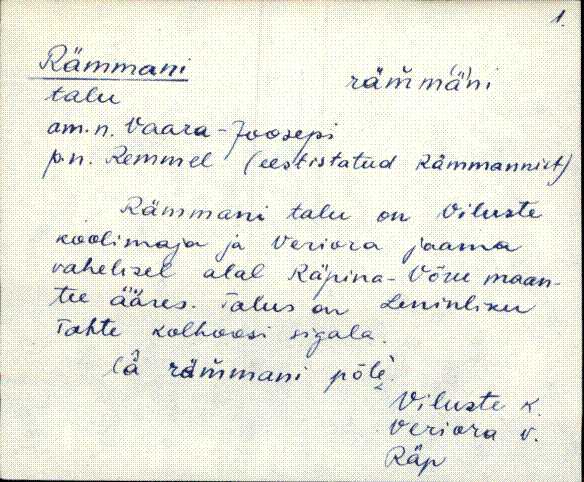 1.
Rämmani räm̆m(ä)ni
talu
am.n. Vaara-Joosepi
p.n. Remmel (eestistatud Rämmannist)
Rämmani talu on Viluste
koolimaja ja Veriora jaama
vahelisel alal Räpina-Võru maan-
tee ääres. Talus on Leninliku
Tahte kolhoosi sigala.
räm̆mani põlè.
Viluste k.
Veriora v.
Räp